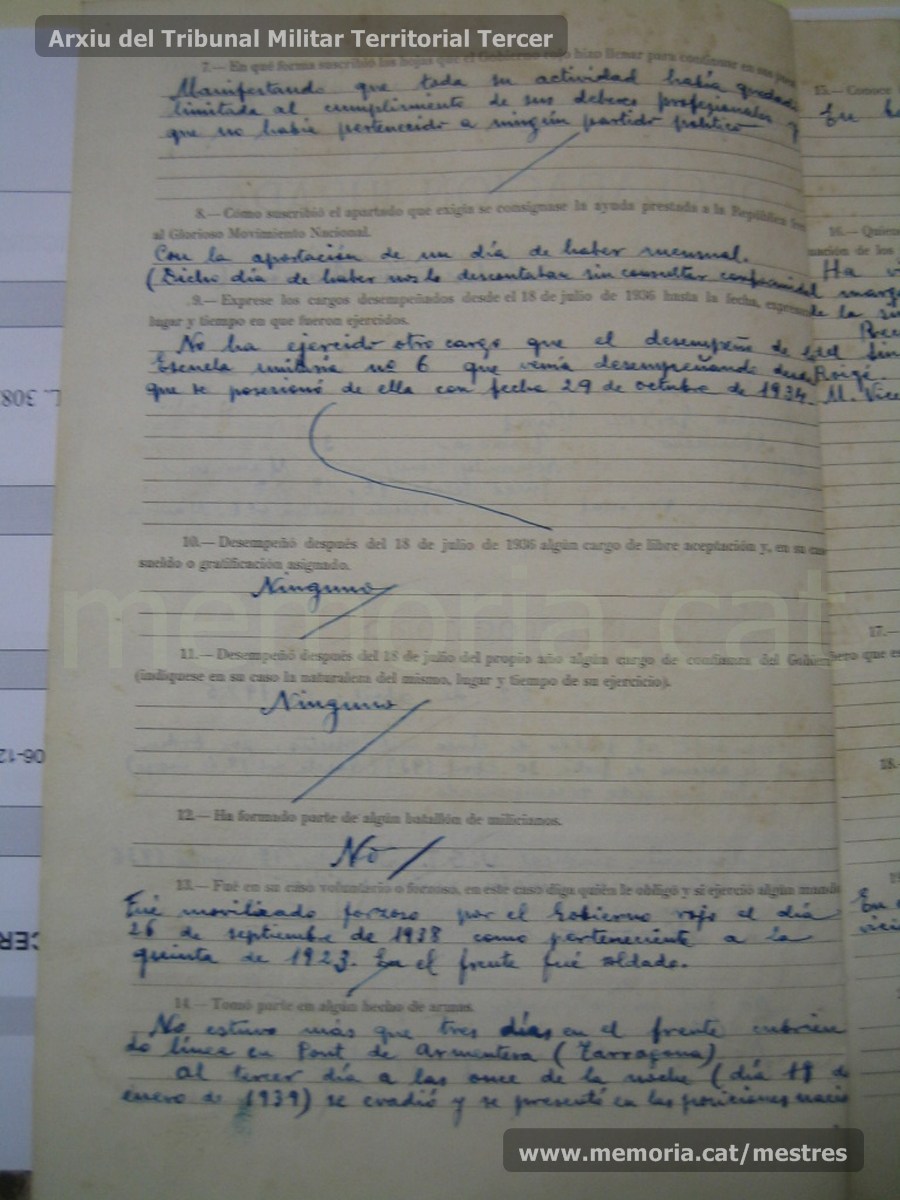 Arxiu del Tribunal Militar Territorial Tercer
7.— En qué forma suscribió las hojas que el Gobierno rojo hizo llenar para continuar en sus
Manifestando que toda su actividad había quedado
limitada al cumplimiento de sus deberes profesionales y
que no había pertenecido a ningún partido político
8.— Cómo suscribió el apartado que exigía se consignase la ayuda prestada a la República
al Glorioso Movimiento Nacional.
Con la aportación de un día de haber mensual.
(Dicho día de haber nos lo descontaban sin consultar
9.— Exprese los cargos desempeñados desde el 18 de julio de 1936 hasta la fecha,
lugar y tiempo en que fueron ejercidos.
No ha ejercido otro cargo que el desempeño de
Escuela unitaria nº 6 que venía desempeñando desde
que se posesionó de ella con fecha 29 de octubre de 1934.
10.— Desempeñó después del 18 de julio de 1936 algún cargo de libre aceptación y, en su
sueldo o gratificación asignado.
Ninguno
11.— Desempeñó después del 18 de julio del propio año algún cargo de confianza del
(indíquese en su caso la naturaleza del mismo, lugar y tiempo de su ejercicio).
Ninguno
12.— Ha formado parte de algún batallón de milicianos.
No
13.— Fué en su caso voluntario o forzoso, en este caso diga quién le obligó y si ejerció algún mando
Fué movilizado forzoso por el Gobierno rojo el día
26 de septiembre de 1938 como perteneciente a la
quinta de 1923. En el frente fué soldado.
14.— Tomó parte en algún hecho de armas.
No estuvo más que tres días en el frente cubrien
do línea en Pont de Armentera (Tarragona)
Al tercer día a las once de la noche (día 11 de
enero de 1939) se evadió y se presentó en las posiciones naci
15.— Conoce
16.—
nación de los
Ha
17.—
18.—
L. 308
06-12
memoria.cat
www.memoria.cat/mestres